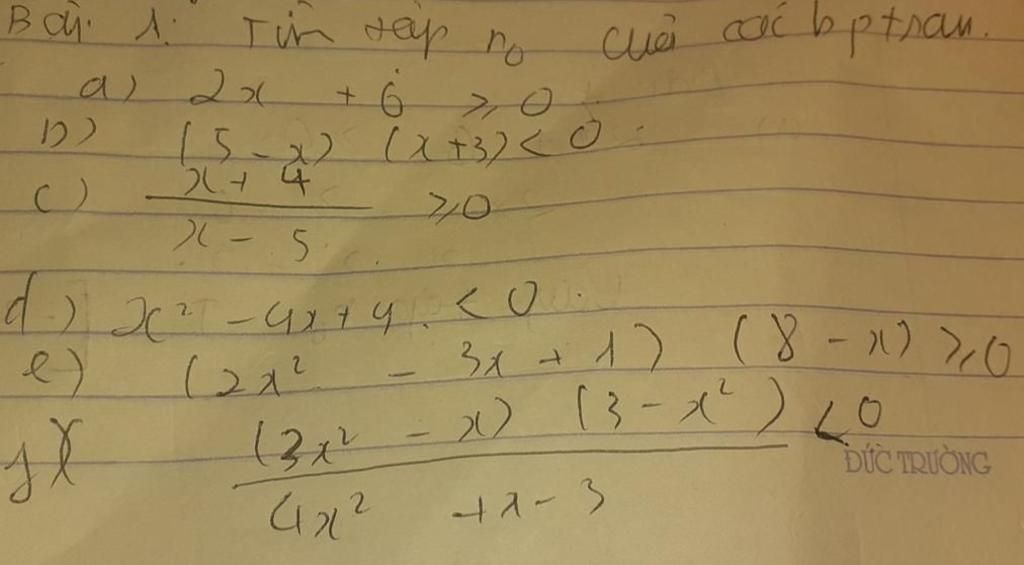 Bài 1: Tìm tập no của các bptrau.
a) 2x + 6 ≥ 0
b) (5 - x) (x + 3) < 0
c) \frac{x + 4}{x - 5} ≥ 0
d) x² - 4x + 4 < 0
e) (2x² - 3x + 1) (8 - x) ≥ 0
f) \frac{(3x² - x) (3 - x²)}{4x² + x - 3} < 0
ĐỨC TRƯỜNG